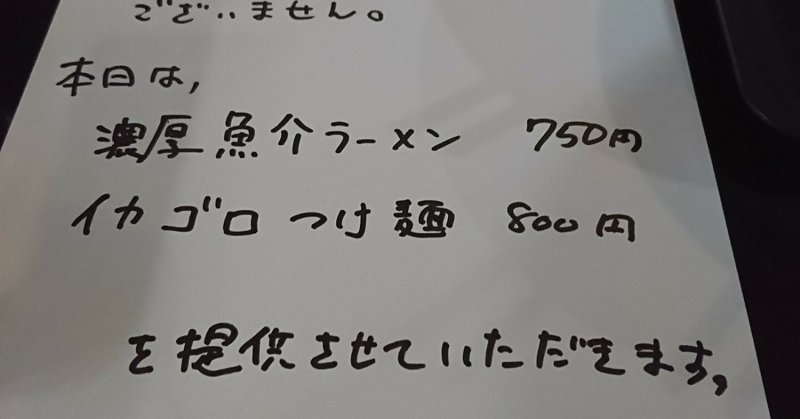 ございません。
本日は,
濃厚魚介ラーメン 750円
イカゴロつけ麺 800円
を提供させていただきます,